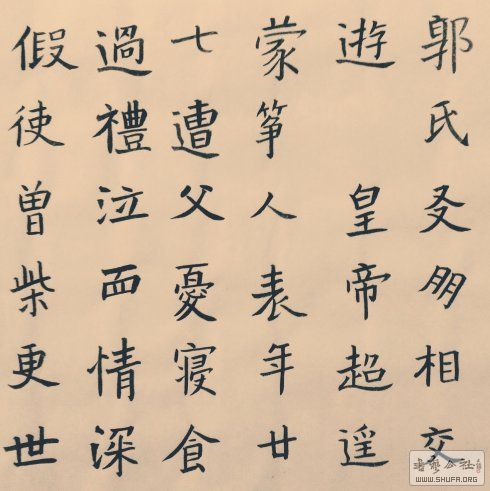 郭氏爻朋相交
遊 皇帝超遥
蒙筝人表年廿
七遭父憂寝食
過禮泣面情深
假使曾柴更世
WWW.SHUFA.ORG